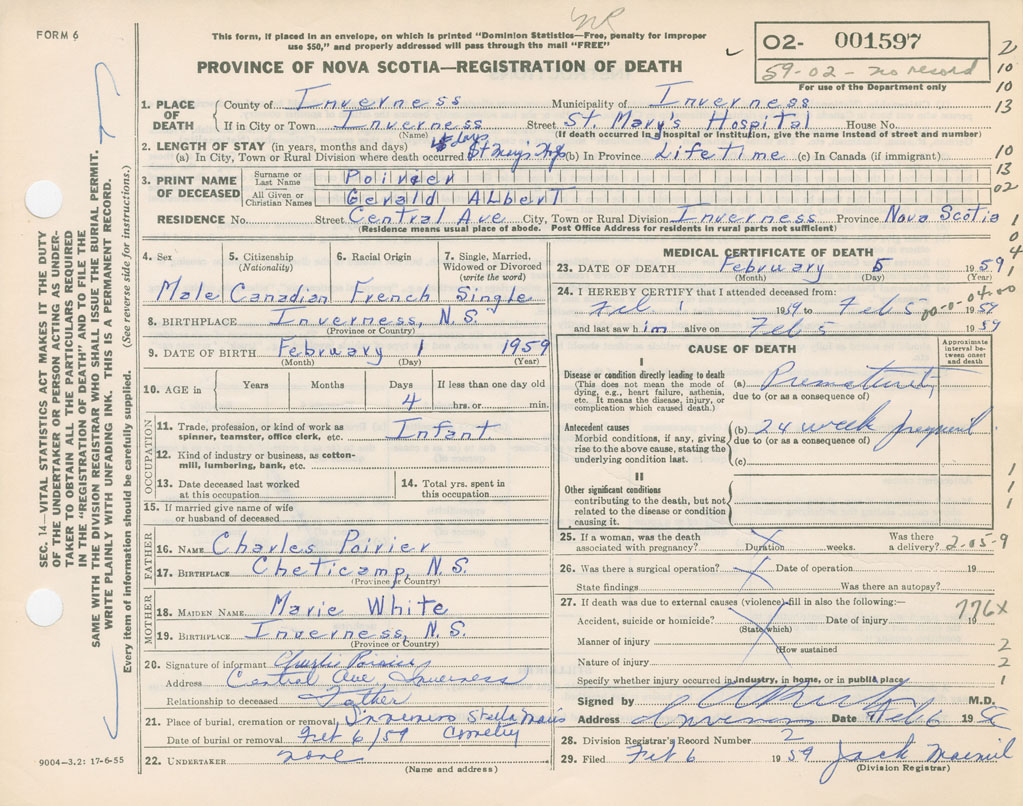 NR
FORM 6
This form, if placed in an envelope, on which is printed "Dominion Statistics—Free, penalty for improper
use $50," and properly addressed will pass through the mail "FREE"
02- 001597
59-02 - no record
For use of the Department only
PROVINCE OF NOVA SCOTIA—REGISTRATION OF DEATH
1. PLACE OF DEATH County of Inverness Municipality of Inverness
If in City or Town Inverness Street St. Mary's Hospital House No.
(Name) (If death occurred in a hospital or institution, give the name instead of street and number)
2. LENGTH OF STAY (in years, months and days) days
(a) In City, Town or Rural Division where death occurred St Mary's Hosp (b) In Province Lifetime (c) In Canada (if immigrant)
3. PRINT NAME OF DECEASED Surname or Last Name Poirier
All Given or Christian Names Gerald ALbert
RESIDENCE No. Street Central Ave City, Town or Rural Division Inverness Province Nova Scotia
(Residence means usual place of abode. Post Office Address for residents in rural parts not sufficient)
2
10
10
13
10
13
02
1
0
4
1
SEC. 14—VITAL STATISTICS ACT MAKES IT THE DUTY
OF THE UNDERTAKER OR PERSON ACTING AS UNDER-
TAKER TO OBTAIN ALL THE PARTICULARS REQUIRED
IN THE "REGISTRATION OF DEATH" AND TO FILE THE
SAME WITH THE DIVISION REGISTRAR WHO SHALL ISSUE THE BURIAL PERMIT.
WRITE PLAINLY WITH UNFADING INK. THIS IS A PERMANENT RECORD.
Every item of information should be carefully supplied. (See reverse side for instructions.)
4. Sex 5. Citizenship 6. Racial Origin 7. Single, Married,
(Nationality) Widowed or Divorced
(write the word)
Male Canadian French Single
8. BIRTHPLACE Inverness, N.S.
(Province or Country)
9. DATE OF BIRTH February 1 1959
(Month) (Day) (Year)
10. AGE in Years Months Days If less than one day old
4 hrs. or min.
OCCUPATION
11. Trade, profession, or kind of work as
spinner, teamster, office clerk, etc. Infant
12. Kind of industry or business, as cotton-
mill, lumbering, bank, etc.
13. Date deceased last worked 14. Total yrs. spent in
at this occupation this occupation
15. If married give name of wife
or husband of deceased
FATHER
16. NAME Charles Poirier
17. BIRTHPLACE Cheticamp, N.S.
(Province or Country)
MOTHER
18. MAIDEN NAME Marie White
19. BIRTHPLACE Inverness, N.S.
(Province or Country)
20. Signature of informant Charlie Poirier
Address Central Ave, Inverness
Relationship to deceased Father
21. Place of burial, cremation or removal Inverness Stella Maris
Date of burial or removal Feb 6/59 Cemetery
22. UNDERTAKER none
(Name and address)
9004-3.2: 17-6-55
MEDICAL CERTIFICATE OF DEATH
23. DATE OF DEATH February 5 1959
(Month) (Day) (Year)
24. I HEREBY CERTIFY that I attended deceased from:
Feb 1 1959 to Feb 5 1959
00-00-04-00
and last saw him alive on Feb 5 1959
CAUSE OF DEATH
Approximate
interval be-
tween onset
and death
I
Disease or condition directly leading to death
(This does not mean the mode of
dying, e.g., heart failure, asthenia,
etc. It means the disease, injury, or
complication which caused death.)
(a) Prematurity
due to (or as a consequence of)
Antecedent causes
Morbid conditions, if any, giving
rise to the above cause, stating the
underlying condition last.
(b) 24 week
due to (or as a consequence of)
(c)
II
Other significant conditions
contributing to the death, but not
related to the disease or condition
causing it.
1
1
1
25. If a woman, was the death Was there
associated with pregnancy? Duration weeks. a delivery? 2-05-9
26. Was there a surgical operation? Date of operation 19
State findings Was there an autopsy?
27. If death was due to external causes (violence) fill in also the following:—
776X
Accident, suicide or homicide? Date of injury 19
(State which)
Manner of injury 2
(How sustained
Nature of injury 2
Specify whether injury occurred in industry, in home, or in public place 1
Signed by M.D.
Address Inverness Date Feb 6 19
28. Division Registrar's Record Number 2
29. Filed Feb 6 1959 Jack
(Division Registrar)